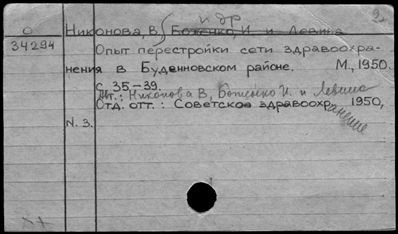 и др
О Никонова, В. Боженко, И. и Левина
34294 Опыт перестройки сети здравоохра-
нения в Буденновском районе. М., 1950.
с. 35-39.
Авт.: Никонова В, Боженко И. и Левина
Отд. отт.: Советское здравоохранение 1950,
N. 3.